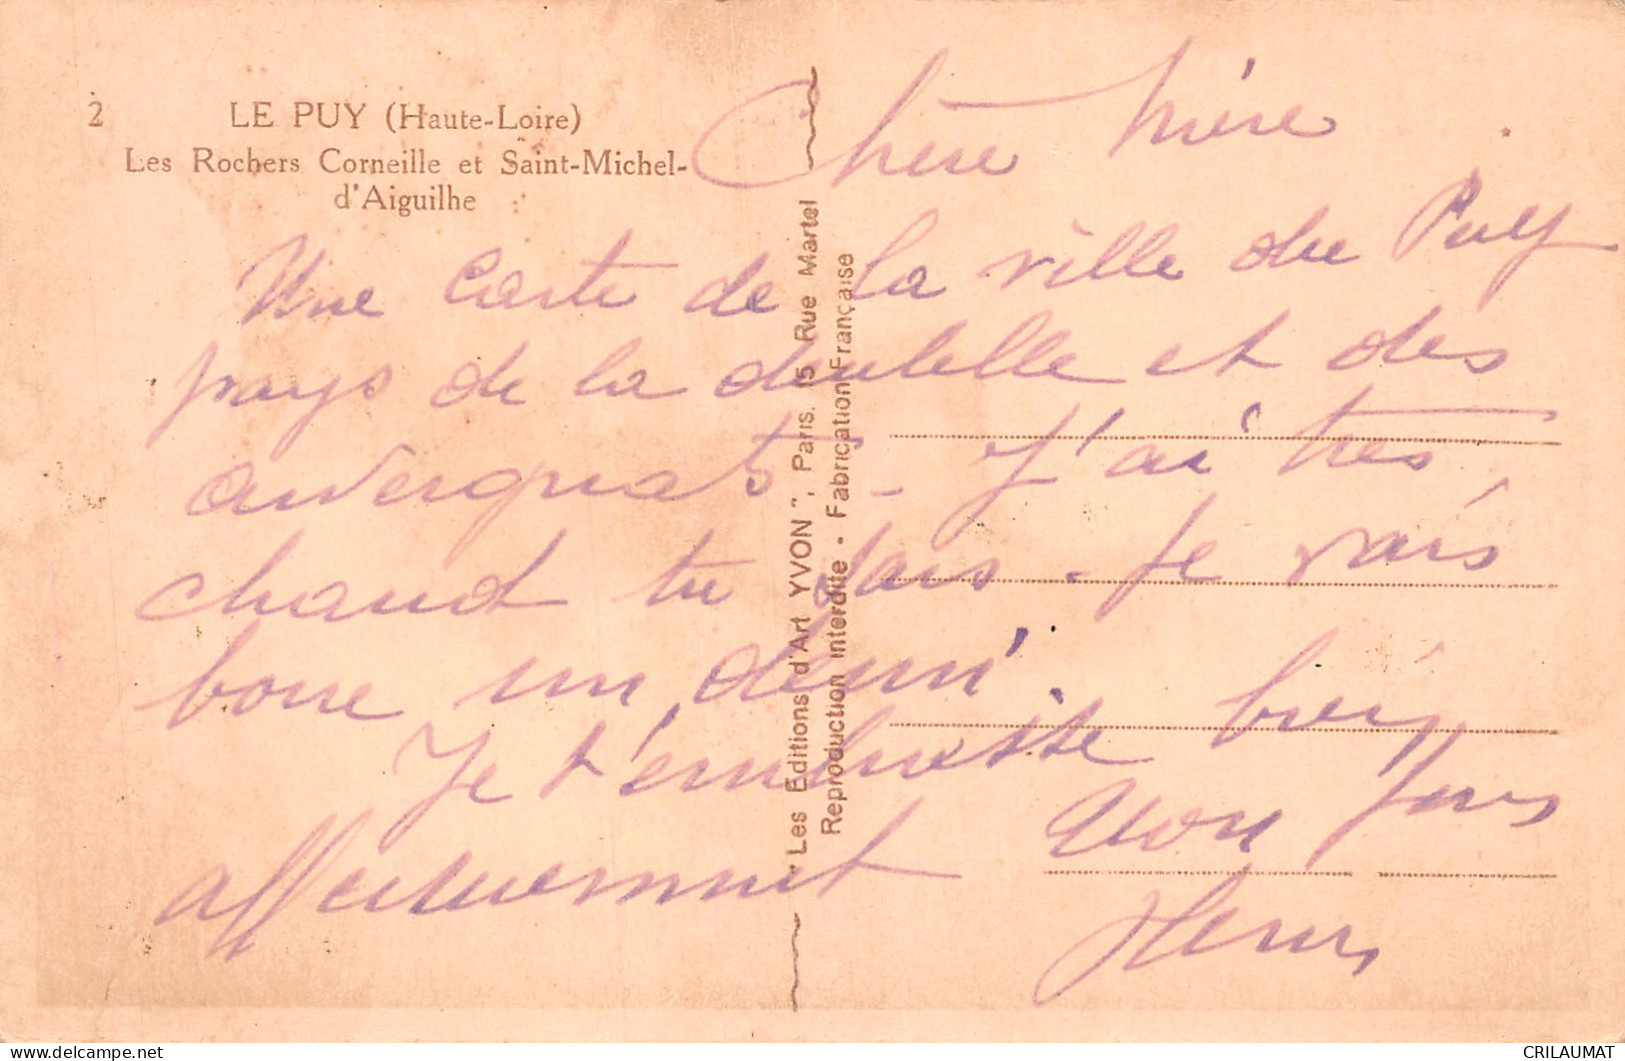 2
LE PUY (Haute-Loire)
Les Rochers Corneille et Saint-Michel-
d'Aiguilhe
Chère Mère
Une carte de la ville du Puy
pays de la dentelle et des
auvergnats - J'ai très
chaud tu sais. Je vais
boire un demi.
Je t'embrasse bien
affectueusement Ton fils
Henri
"Les Editions d'Art YVON", Paris. 15 Rue Martel
Reproduction Interdite - Fabrication Française
delcampe.net
CRILAUMAT